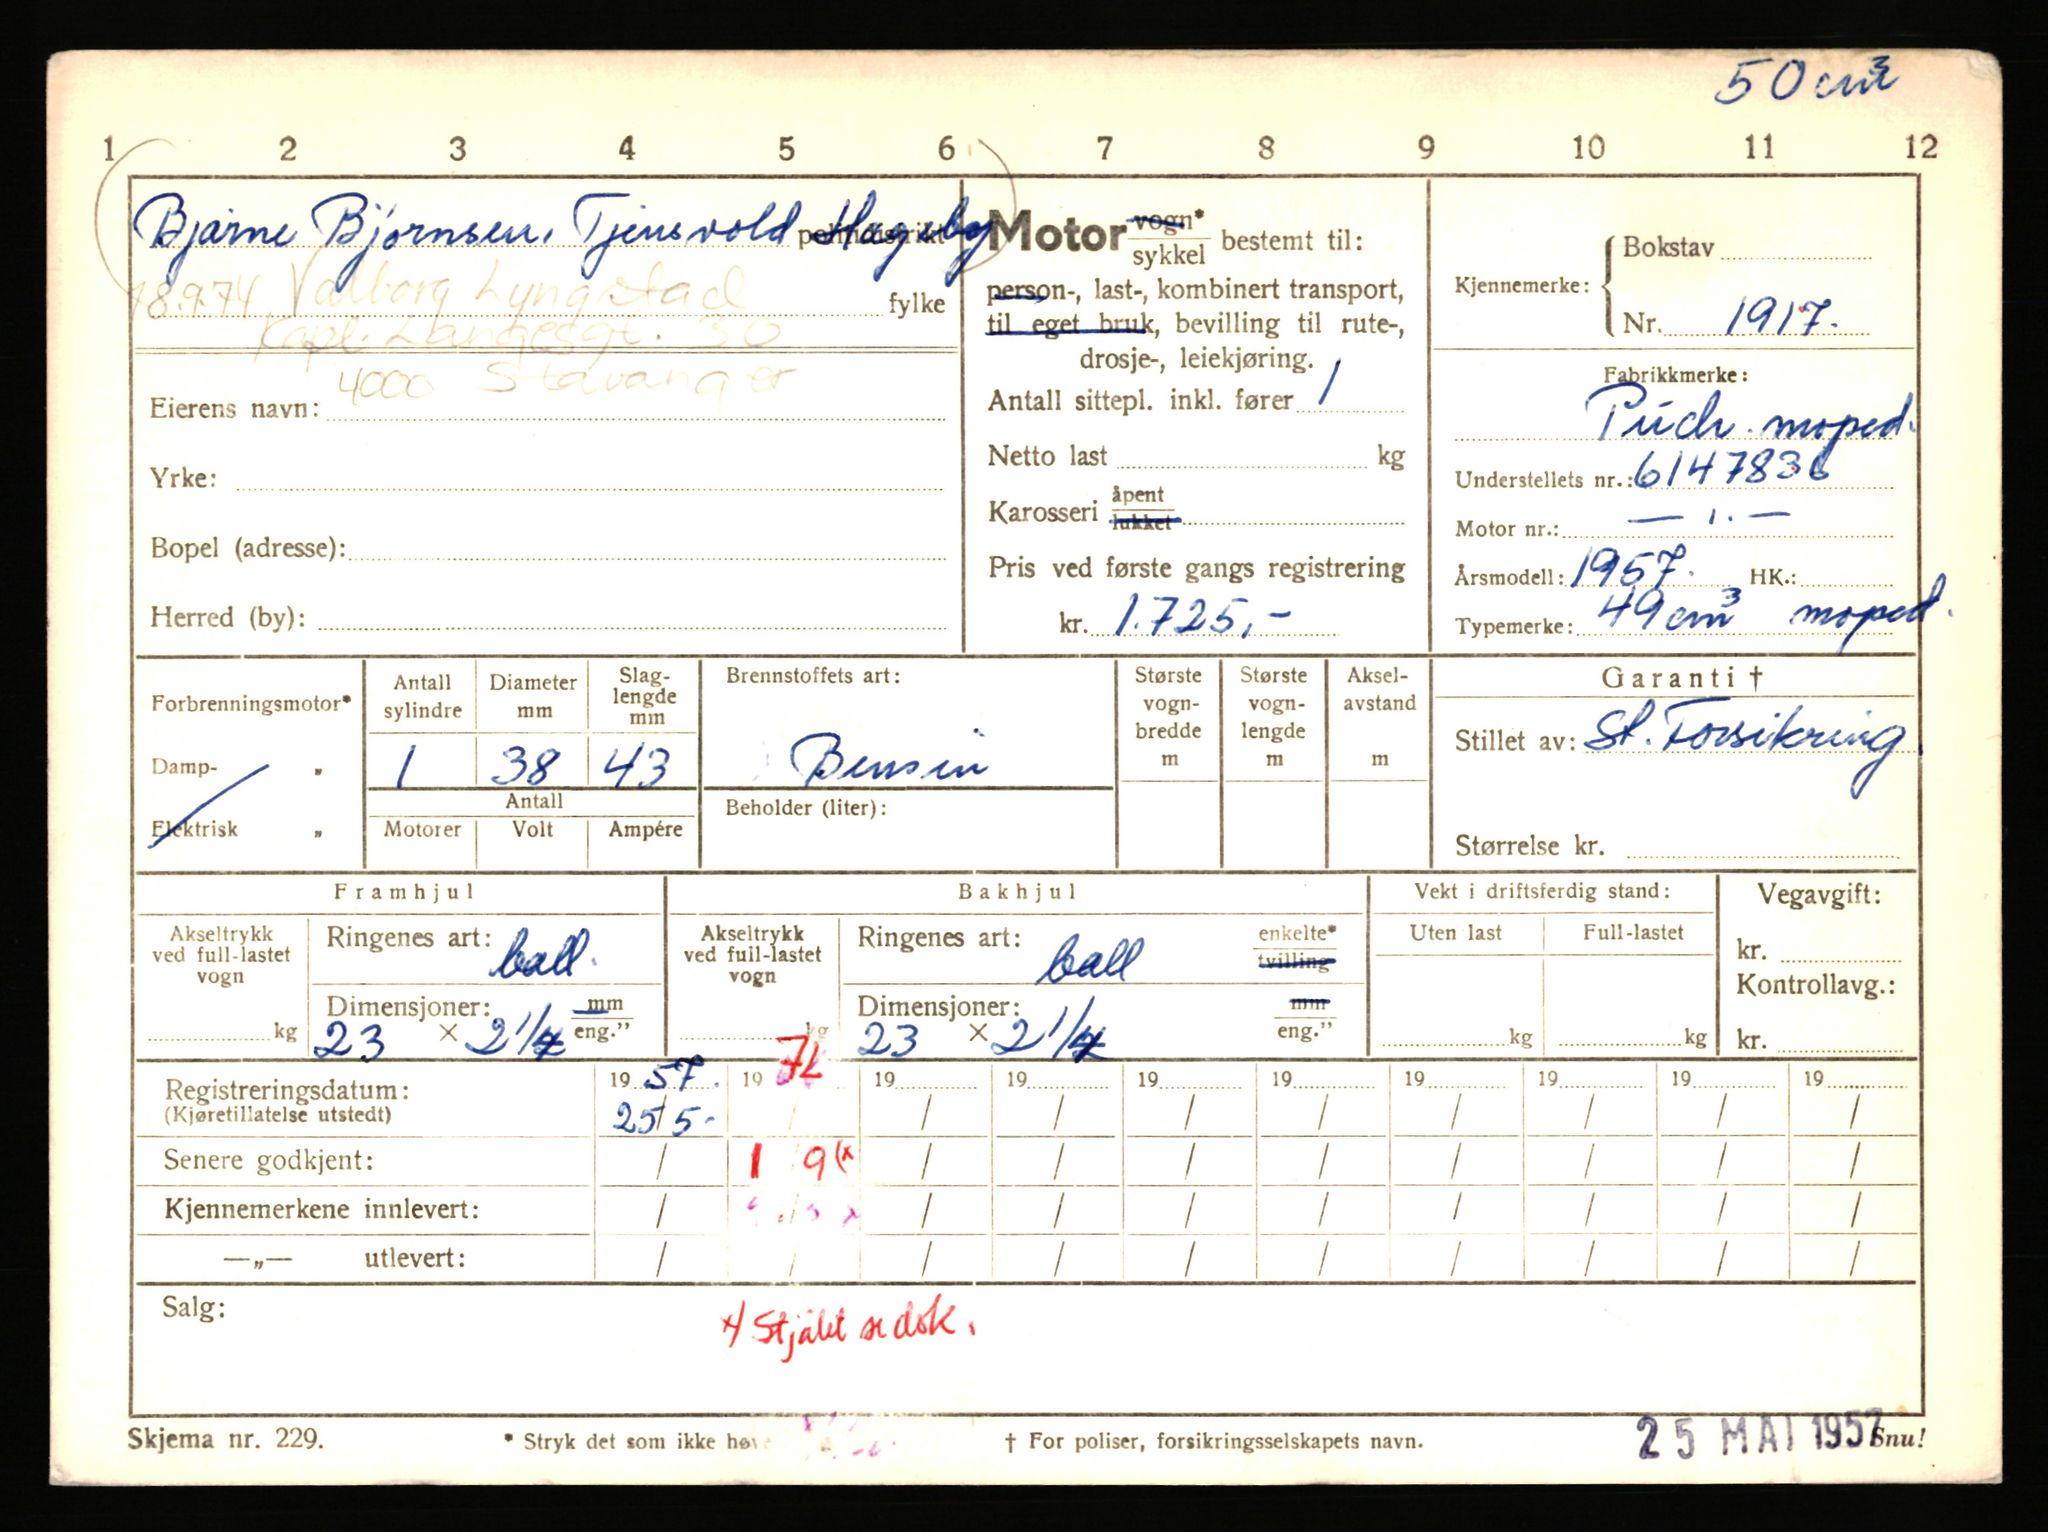 50 cm³
1 2 3 4 5 6 7 8 9 10 11 12
Bjarne Bjørnsen, Tjensvold Hageby politidistrikt
18.9.74 Valborg Lyngstad fylke
Kapl. Langesgt. 30
4000 Stavanger
Eierens navn:
Yrke:
Bopel (adresse):
Herred (by):
Motor vogn* sykkel bestemt til:
person-, last-, kombinert transport,
til eget bruk, bevilling til rute-,
drosje-, leiekjøring.
Antall sittepl. inkl. fører 1
Netto last kg
Karosseri åpent lukket
Pris ved første gangs registrering
kr. 1.725,-
Kjennemerke: Bokstav
Nr. 1917.
Fabrikkmerke:
Puch moped.
Understellets nr.: 6147836
Motor nr.: — ı. —
Årsmodell: 1957. HK.:
Typemerke: 49 cm³ moped.
Forbrenningsmotor*
Damp- „
Elektrisk „
Antall sylindre
Diameter mm
Slag-lengde mm
1 38 43
Antall
Motorer Volt Ampére
Brennstoffets art:
Bensin
Beholder (liter):
Største vogn-bredde m
Største vogn-lengde m
Aksel-avstand m
Garanti †
Stillet av: St. Forsikring
Størrelse kr.
Framhjul
Akseltrykk ved full-lastet vogn
kg
Ringenes art: ball.
Dimensjoner: mm
23 × 2 1/4 eng."
Bakhjul
Akseltrykk ved full-lastet vogn
kg
Ringenes art: ball enkelte* tvilling
Dimensjoner: mm
23 × 2 1/4 eng."
Vekt i driftsferdig stand:
Uten last Full-lastet
kg kg
Vegavgift:
kr.
Kontrollavg.:
kr.
Registreringsdatum: 19 57. 19 72 19 19 19 19 19 19 19 19
(Kjøretillatelse utstedt) 25/5- / / / / / / / / /
Senere godkjent: / 1/9 (x / / / / / / / /
Kjennemerkene innlevert: / / / / / / / / / /
—„— utlevert: / / / / / / / / / /
Salg:
x) Stjålet se dok.
Skjema nr. 229.
* Stryk det som ikke
† For poliser, forsikringsselskapets navn.
25 MAI 1957
Snu!